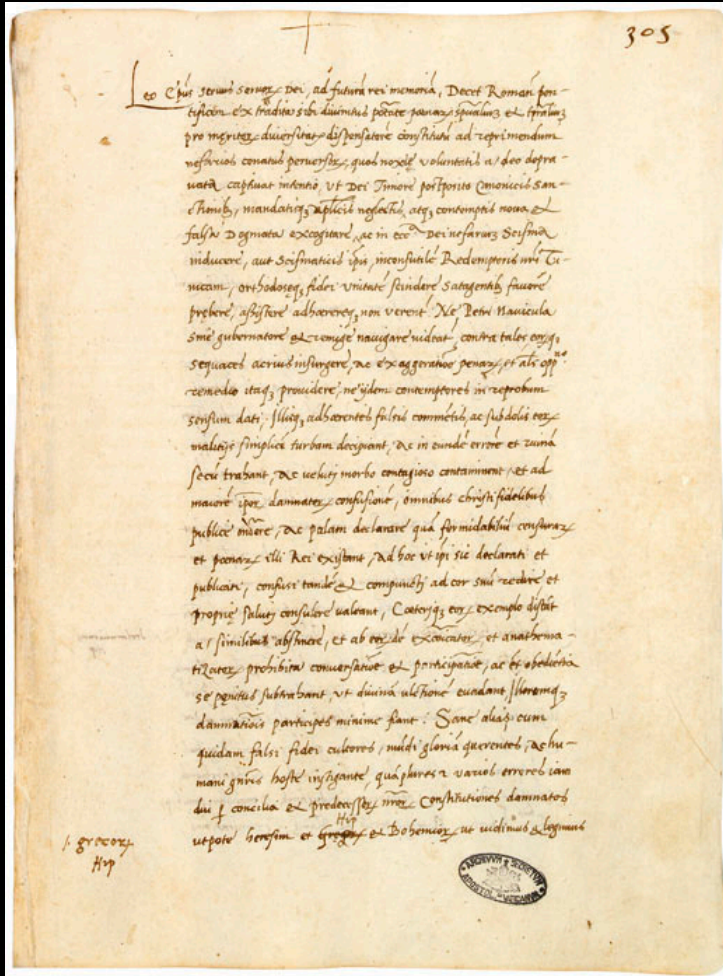 305
Leo Ep̃us seruus seruoꝝ Dei, ad futurā rei memoriā, Decet Romanū pon-
tificem ex tradita sibi diuinitus ptāte penaꝝ, spũaliuꝫ et tp̃aliuꝫ
pro meritoꝝ diuersitate dispensatorē constitutū ad reprimendum
nefarios conatus peruersoꝝ, quos noxię voluntatis adeo depra-
uata captiuat intentio, ut Dei Timore postposito Canonicis San-
ctionibꝫ, mandatisqꝫ ap̃licis neglectis, atqꝫ contemptis noua et
falsa Dogmata excogitare, ac in ecc.ᵃ Dei nefariuꝫ Scisma
inducere, aut Scismaticis ip̃is, inconsutilē Redemptoris nr̃i Tu-
nicam, orthodoxęqꝫ fidei unitatē scindere satagentibꝫ fauorē
pręberē, assistere adhærereqꝫ non verent̃ Ne Petri Nauicula
sinē gubernatore et remige nauigare uideat̃, contra tales eorqꝫ
sequaces acrius insurgere, ac exaggeratiōe penaꝝ, et al̃s opp.ⁿᵒ
remedio itaqꝫ prouidere, ne ijdem contemptores in reprobum
sensum dati, Illisqꝫ adhærentes falsis commētis, ac subdolis eoꝝ
malitijs simplicē turbam decipiant, ac in eundē errorē et ruinā
secū trahant, ac veluti morbo contagioso contaminent, et ad
maiorē ip̃oꝝ damnatoꝝ confusionē, omnibus christifidelibus
publicē ondere, ac palam declarare quā formidabiliū censuraꝝ
et poenaꝝ illi Rei existant, Ad hoc ut ip̃i sic declarati et
publicati, confusi tandē et compuncti ad cor suū redire et
propriē saluti consulere valeant, Cœteriqꝫ eoꝝ exemplo discāt
a similibus abstinere, et ab eoꝝdē excōicatoꝝ, et anathema-
tizatoꝝ prohibita conuersatiōe et participatiōe, ac et obediētia
se pęnitus subtrahant, ut diuinā ultionē euadant Illorumqꝫ
damnatiōis participes minime fiant. Sane alias cum
quidam falsi fidei cultores, mūdi gloriā querentes, ac hu-
mani gñris hoste instigante, quāplures 2 varios errores iam
dui ꝑ concilia et predecessoꝝ nr̃oꝝ Constitutiones damnatos
utpote heresim et gręgoꝝ Hip et Bohemioꝝ ut uidimus et legimus
/. grecoꝝ
Hip
ARCHIVVM SECRETVM APOSTOL. VATICANVM